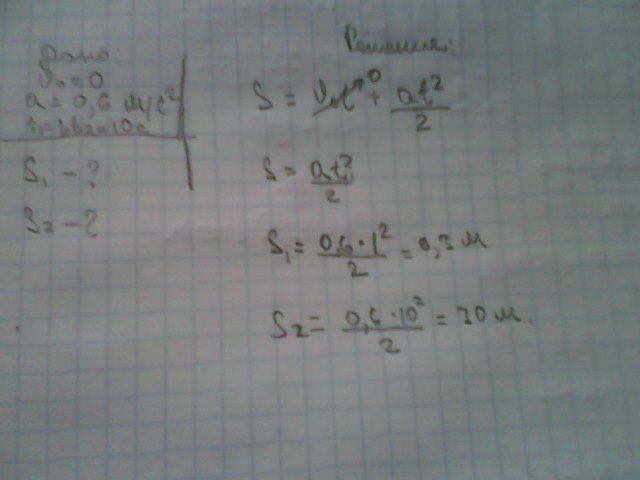 Дано:
v₀ = 0
a = 0,6 м/с²
S₁ - ?
S₂ - ?
Решение:
S = v₀t↗0 + at²/2
S = at²/2
S₁ = 0,6·1²/2 = 0,3 м
S₂ = 0,6·10²/2 = 30 м.